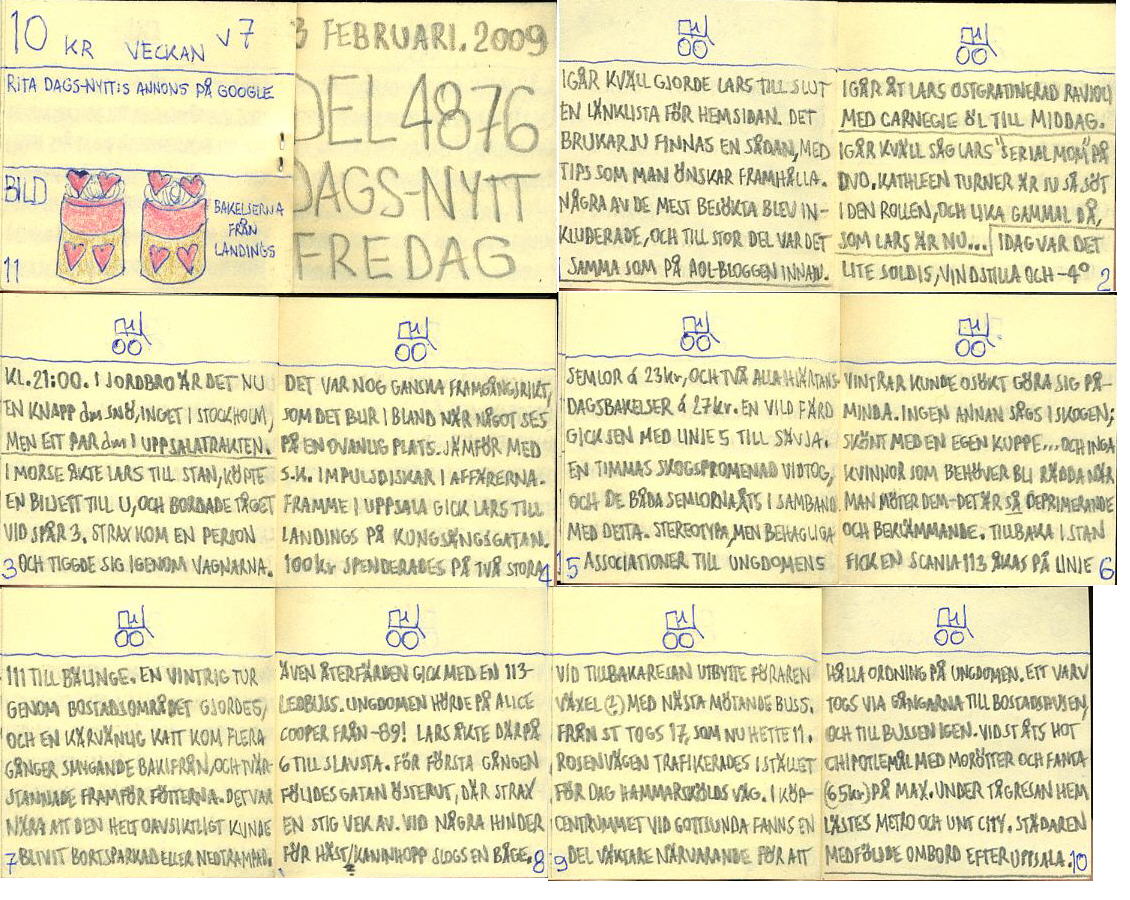 10 KR VECKAN V7
RITA DAGS-NYTT:S ANNONS PÅ GOOGLE
BILD
BAKELSERNA
FRÅN
LANDINGS
11
3 FEBRUARI. 2009
DEL 4876
DAGS-NYTT
FREDAG
IGÅR KVÄLL GJORDE LARS TILL SLUT
EN LÄNKLISTA FÖR HEMSIDAN. DET
BRUKAR JU FINNAS EN SÅDAN, MED
TIPS SOM MAN ÖNSKAR FRAMHÅLLA.
NÅGRA AV DE MEST BESÖKTA BLEV IN-
KLUDERADE, OCH TILL STOR DEL VAR DET
SAMMA SOM PÅ AOL-BLOGGEN INNAN.
1
IGÅR ÅT LARS OSTGRATINERAD RAVIOLI
MED CARNEGIE ÖL TILL MIDDAG.
IGÅR KVÄLL SÅG LARS "SERIAL MOM" PÅ
DVD. KATHLEEN TURNER ÄR JU SÅ SÖT
I DEN ROLLEN, OCH LIKA GAMMAL DÅ,
SOM LARS ÄR NU... IDAG VAR DET
LITE SOLDIS, VINDSTILLA OCH -4°
2
KL. 21:00. I JORDBRO ÄR DET NU
EN KNAPP dm SNÖ, INGET I STOCKHOLM,
MEN ETT PAR dm I UPPSALATRAKTEN.
I MORSE ÅKTE LARS TILL STAN, KÖPTE
EN BILJETT TILL U, OCH BORDADE TÅGET
VID SPÅR 3. STRAX KOM EN PERSON
OCH TIGGDE SIG IGENOM VAGNARNA.
3
DET VAR NOG GANSKA FRAMGÅNGSRIKT,
SOM DET BLIR I BLAND NÄR NÅGOT SES
PÅ EN OVANLIG PLATS. JÄMFÖR MED
S.K. IMPULSDISKAR I AFFÄRERNA.
FRAMME I UPPSALA GICK LARS TILL
LANDINGS PÅ KUNGSÄNGSGATAN.
100 kr SPENDERADES PÅ TVÅ STORA
4
SEMLOR á 23kr, OCH TVÅ ALLA HJÄRTANS
DAGSBAKELSER á 27kr. EN VILD FÄRD
GICK SEN MED LINJE 5 TILL SÄVJA.
EN TIMMAS SKOGSPROMENAD VIDTOG,
OCH DE BÅDA SEMLORNA ÄTS I SAMBAND
MED DETTA. STEREOTYPA, MEN BEHAGLIGA
ASSOCIATIONER TILL UNGDOMENS
5
VINTRAR KUNDE OSÖKT GÖRA SIG PÅ-
MINDA. INGEN ANNAN SÅGS I SKOGEN;
SKÖNT MED EN EGEN KUPPE... OCH INGA
KVINNOR SOM BEHÖVER BLI RÄDDA NÄR
MAN MÖTER DEM-DET ÄR SÅ DEPRIMERANDE
OCH BEKLÄMMANDE. TILLBAKA I STAN
FICK EN SCANIA 113 ÅKAS PÅ LINJE
6
111 TILL BÄLINGE. EN VINTRIG TUR
GENOM BOSTADSOMRÅDET GJORDES,
OCH EN KÄRVÄNLIG KATT KOM FLERA
GÅNGER SMYGANDE BAKIFRÅN, OCH TVÄR-
STANNADE FRAMFÖR FÖTTERNA. DET VAR
NÄRA ATT DEN HELT OAVSIKTLIGT KUNDE
BLIVIT BORTSPARKAD ELLER NEDTRAMPAD.
7
ÄVEN ÅTERFÄRDEN GICK MED EN 113-
LEDBUSS. UNGDOMEN HÖRDE PÅ ALICE
COOPER FRÅN -89! LARS ÅKTE DÄRPÅ
6 TILL SLAVSTA. FÖR FÖRSTA GÅNGEN
FÖLJDES GATAN ÖSTERUT, DÄR STRAX
EN STIG VEK AV. VID NÅGRA HINDER
FÖR HÄST/KANINHOPP SLOGS EN BÅGE.
8
VID TILLBAKARESAN UTBYTTE FÖRAREN
VÄXEL (?) MED NÄSTA MÖTANDE BUSS.
FRÅN ST TOGS 17, SOM NU HETTE 11.
ROSENVÄGEN TRAFIKERADES I STÄLLET
FÖR DAG HAMMARSKÖLDS VÄG. I KÖP-
CENTRUMMET VID GOTTSUNDA FANNS EN
DEL VÄKTARE NÄRVARANDE FÖR ATT
9
HÅLLA ORDNING PÅ UNGDOMEN. ETT VARV
TOGS VIA GÅNGARNA TILL BOSTADSHUSEN,
OCH TILL BUSSEN IGEN. VID ST ÄTS HOT
CHIPOTLEMÅL MED MORÖTTER OCH FANTA
(65kr) PÅ MAX. UNDER TÅGRESAN HEM
LÄSTES METRO OCH UNT CITY. STÄDAREN
MEDFÖLJDE OMBORD EFTER UPPSALA.
10